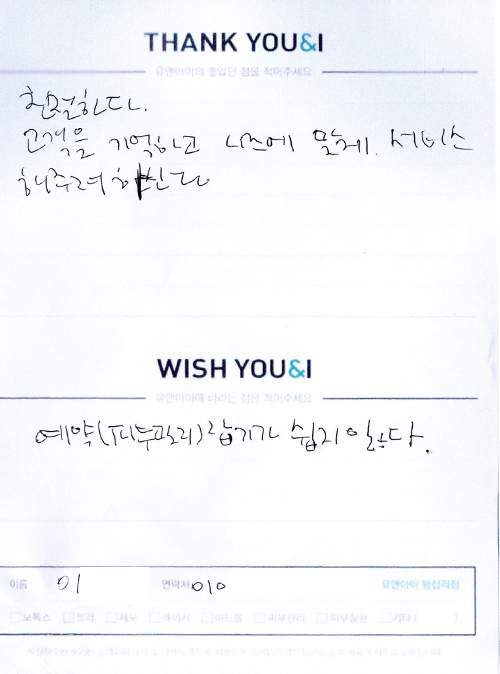 THANK YOU&I
유앤아이의 좋았던 점을 적어주세요
친절하다.
고객을 기억하고 니즈에 맞게. 서비스
해주려하신다
WISH YOU&I
유앤아이에 바라는 점을 적어주세요
예약(피부관리)잡기가 쉽지않다.
이름 이 연락처 010 유앤아이 왕십리점
보톡스 필러 제모 레이저 여드름 피부관리 피부질환 기타 ( )